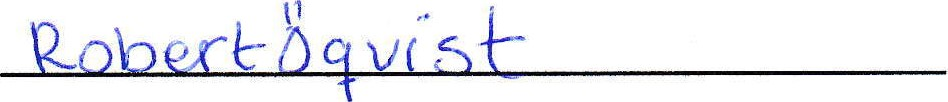 Robert Öqvist